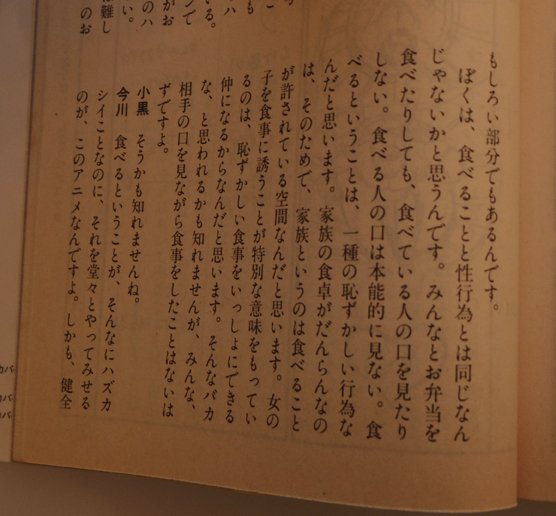 もしろい部分でもあるんです。
ぼくは、食べることと性行為とは同じなん
じゃないかと思うんです。みんなとお弁当を
食べたりしても、食べている人の口を見たり
しない。食べる人の口は本能的に見ない。食
べるということは、一種の恥ずかしい行為な
んだと思います。家族の食卓がだんらんなの
は、そのためで、家族というのは食べること
が許されている空間なんだと思います。女の
子を食事に誘うことが特別な意味をもってい
るのは、恥ずかしい食事をいっしょにできる
仲になるからなんだと思います。そんなバカ
な、と思われるかも知れませんが、みんな、
相手の口を見ながら食事をしたことはないは
ずですよ。
小黒 そうかも知れませんね。
今川 食べるということが、そんなにハズカ
シイことなのに、それを堂々とやってみせる
のが、このアニメなんですよ。しかも、健全